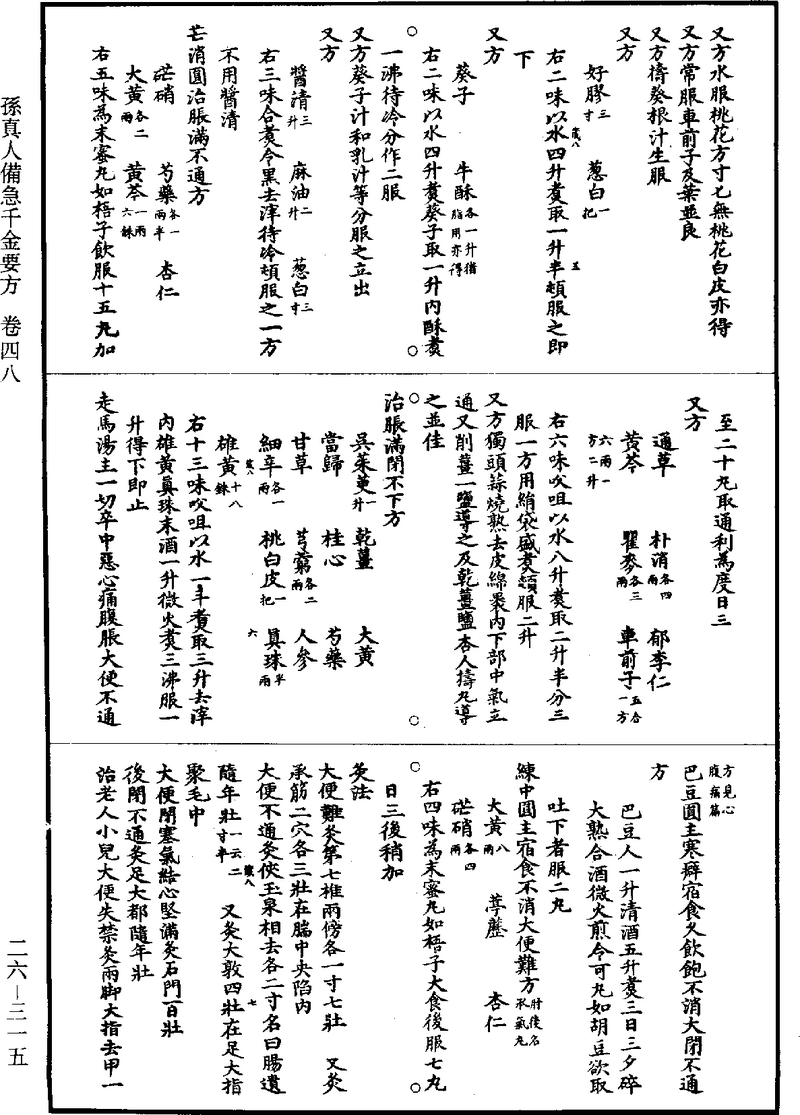 孫真人備急千金要方　卷四八
又方水服桃花方寸匕無桃花白皮亦得
又方常服車前子及葉並良
又方擣葵根汁生服
又方
好膠三寸　葱白一把
右二味以水四升煮取一升半頓服之即
下
又方
葵子　牛酥各一升猪脂用亦得
右二味以水四升煮葵子取一升內酥煮
一沸待冷分作二服
又方葵子汁和乳汁等分服之立出
又方
醬清三升　麻油二升　葱白三寸
右三味合煮令黑去滓待冷頓服之一方
不用醬清
芒消圓治脹滿不通方
芒硝　芍藥各一兩半　杏仁
大黃各二兩　黃芩一兩六銖
右五味為末蜜丸如梧子飲服十五丸加
至二十丸取通利為度日三
又方
通草　朴消各四兩　郁李仁
黃芩　瞿麥各三兩　車前子五合一方
六兩一方二升
右六味㕮咀以水八升煮取二升半分三
服一方用絹袋盛煮頓服二升
又方獨頭蒜燒熟去皮綿裹內下部中氣立
通又削薑一鹽導之及乾薑鹽杏人擣丸導
之並佳
治脹滿閉不下方
吳茱萸一升　乾薑　大黃
當歸　桂心　芍藥
甘草　芎藭各二兩　人參
細辛各一兩　桃白皮一把　真珠半兩
雄黃十八銖
右十三味㕮咀以水一斗煮取三升去滓
內雄黃真珠末酒一升微火煮三沸服一
升得下即止
走馬湯主一切卒中惡心痛腹脹大便不通
方見心腹痛篇
巴豆圓主寒癖宿食久飲飽不消大閉不通
方
巴豆人一升清酒五升煮三日三夕碎
大熟合酒微火煎令可丸如胡豆欲取
吐下者服二丸
練中圓主宿食不消大便難方肘後名承氣丸
大黃八兩　葶藶　杏仁
芒硝各四兩
右四味為末蜜丸如梧子大食後服七丸
日三後稍加
灸法
大便難灸第七椎兩傍各一寸七壯　又灸
承筋二穴各三壯在腨中央陷內
大便不通灸俠玉泉相去各二寸名曰腸遺
隨年壯一云二寸半　又灸大敦四壯在足大指
聚毛中
大便閉塞氣結心堅滿灸石門百壯
後閉不通灸足大都隨年壯
治老人小兒大便失禁灸兩脚大指去甲一
二六－三一五